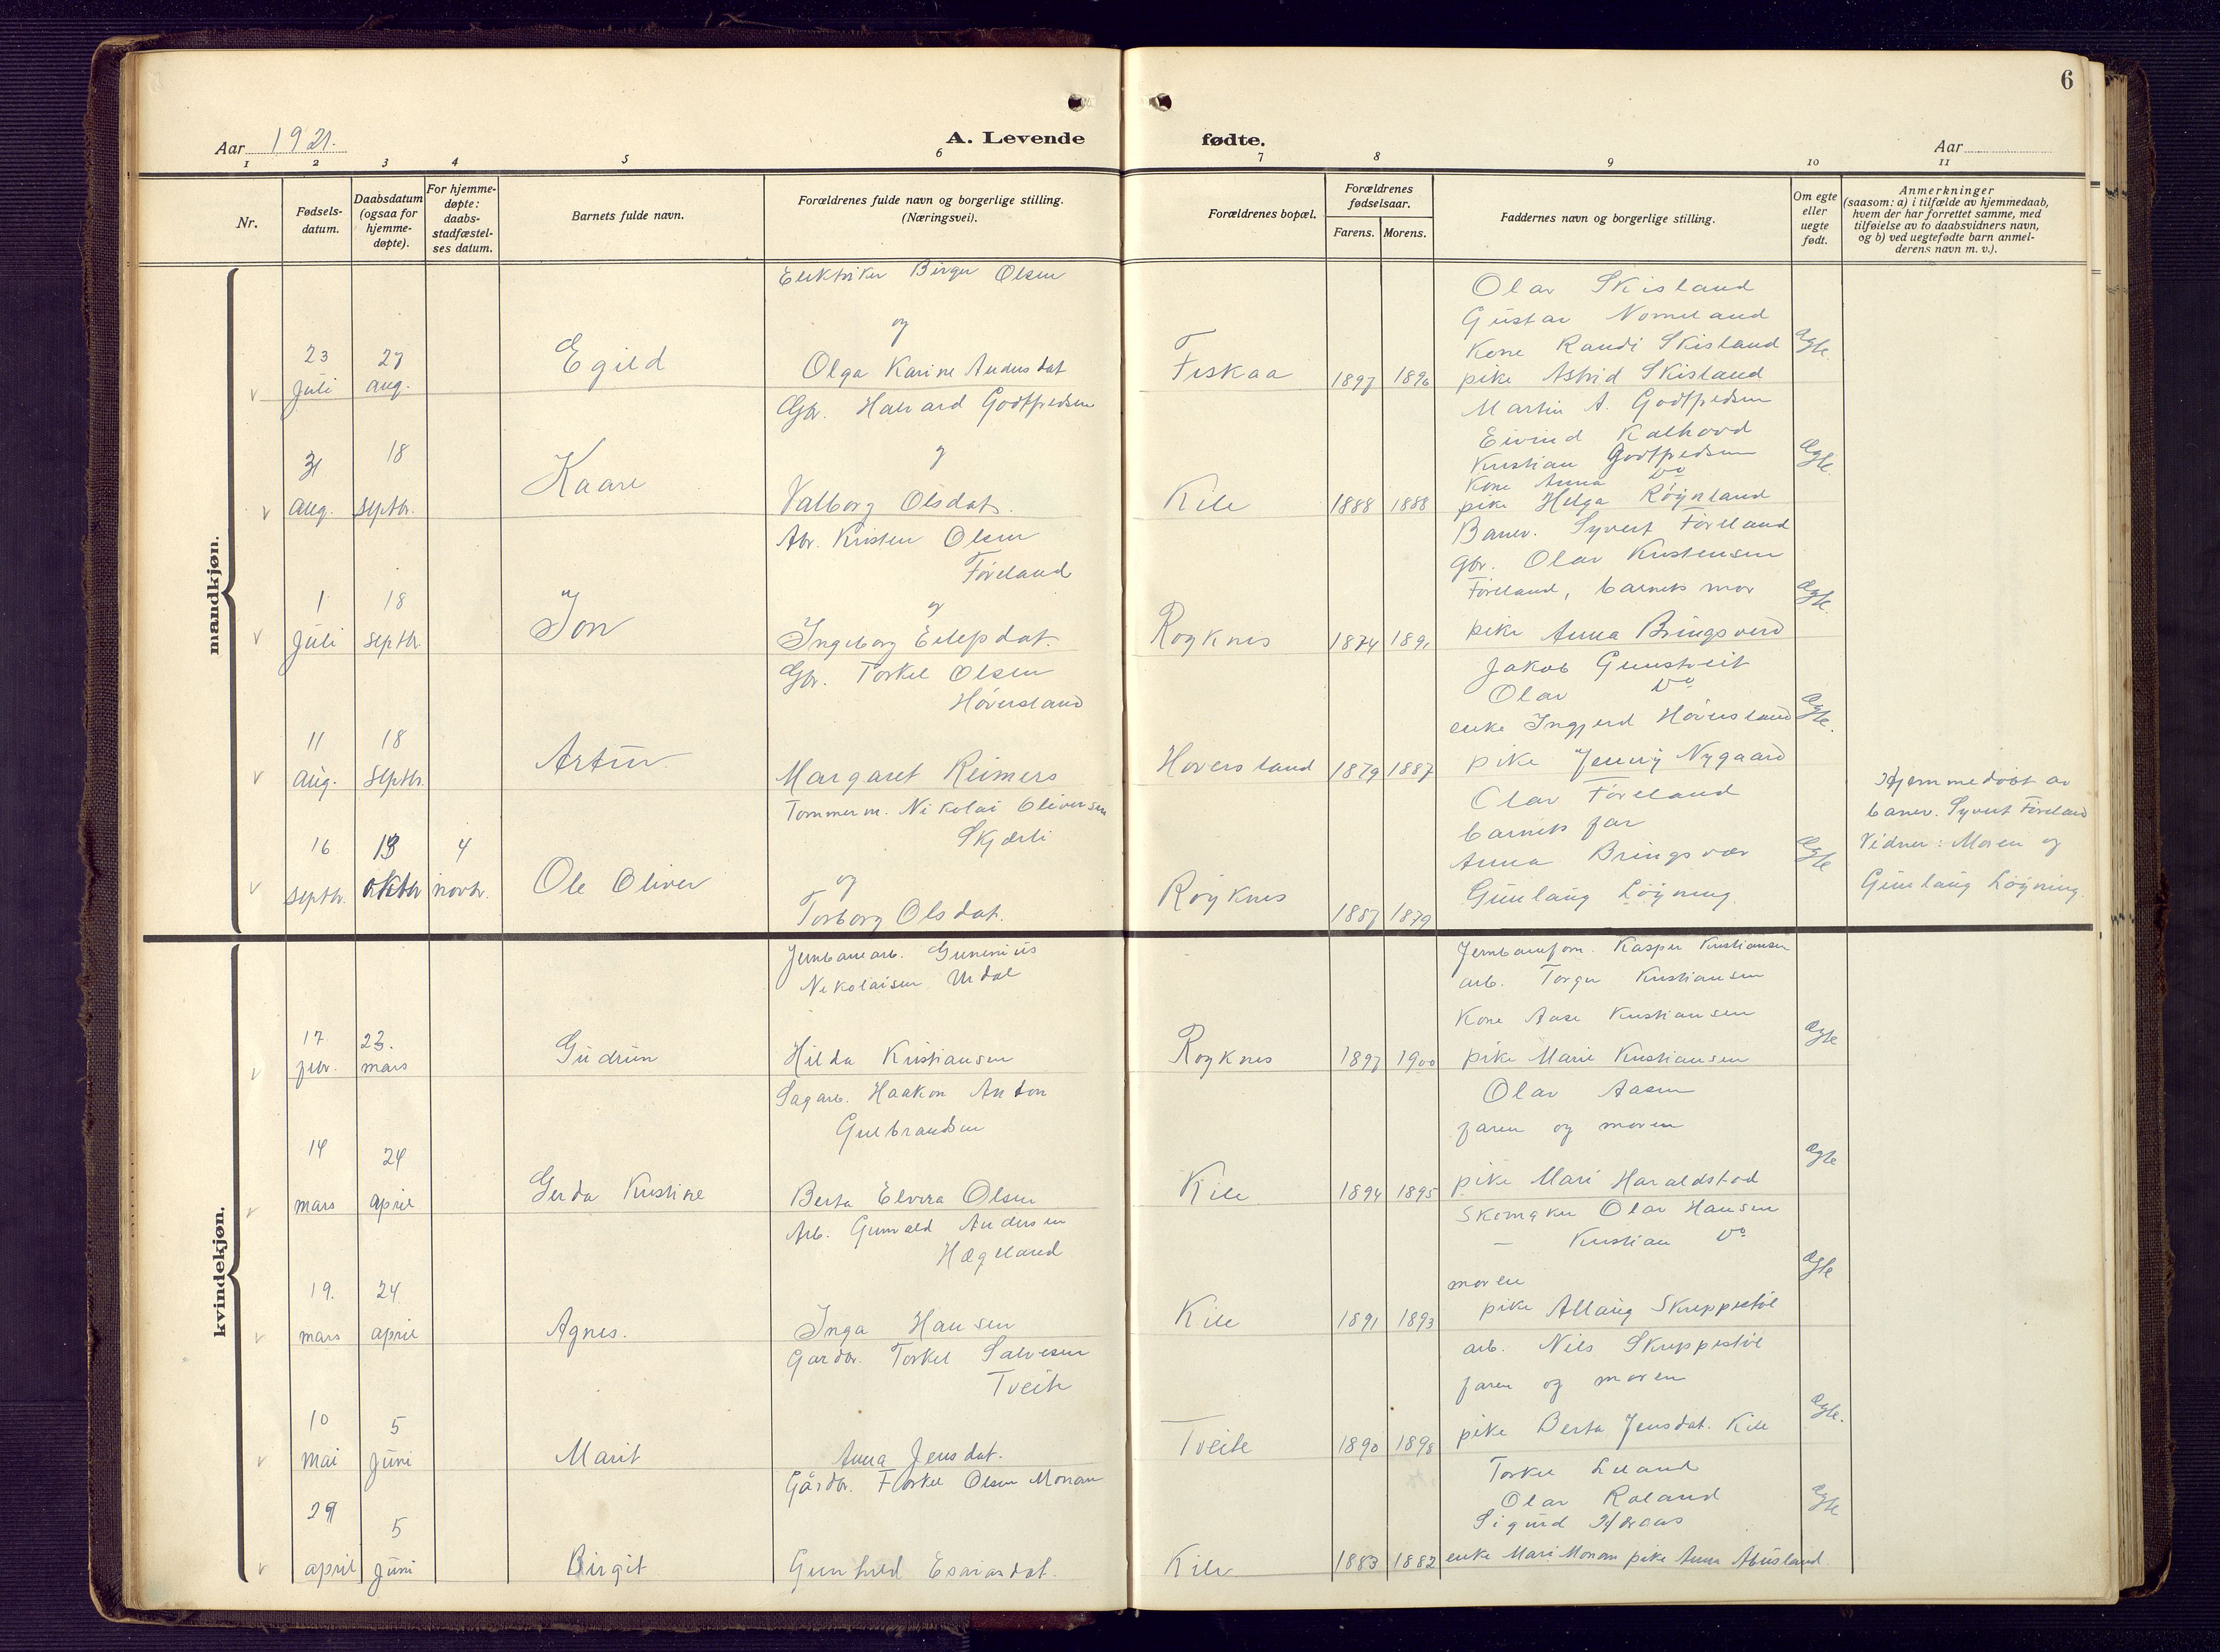 6
Aar 1921.
A. Levende fødte.
Aar
1 2 3 4 5 6 7 8 9 10 11
Nr.
Fødsels-
datum.
Daabsdatum
(ogsaa for
hjemme-
døpte).
For hjemme-
døpte:
daabs-
stadfæstel-
ses datum.
Barnets fulde navn.
Forældrenes fulde navn og borgerlige stilling.
(Næringsvei).
Forældrenes bopæl.
Forældrenes
fødselsaar.
Farens. Morens.
Faddernes navn og borgerlige stilling.
Om egte
eller
uegte
født.
Anmerkninger
(saasom: a) i tilfælde av hjemmedaab,
hvem der har forrettet samme, med
tilføielse av to daabsvidners navn,
og b) ved uegtefødte barn anmel-
derens navn m. v.).
mandkjøn.
23
Juli
27
aug.
Egild
Elektriker Birger Olsen
og
Olga Karine Andersdat
Fiskaa
1897 1896
Olav Skisland
Gustav Nomeland
Kone Randi Skisland
pike Astrid Skisland
Ægte.
31
aug.
18
septbr.
Kaare
Gbr. Halvard Godtfredsen
og
Valborg Olsdat.
Kile
1888 1888
Martin A. Godtfredsen
Eivind Kalhovd
Kristian Godtfredsen
Kone Anna Do
pike Helga Røynland
Ægte.
1
Juli
18
septbr.
Jon
Abr. Kristen Olsen
Føreland
og
Ingeborg Eilefsdat.
Røyknes
1874 1891
Banev. Syvert Føreland
gbr. Olav Kristensen
Føreland, barnets mor
pike Anna Bringsverd
Ægte.
11
aug.
18
septbr.
Artur.
Gbr. Torkel Olsen
Høversland
Margaret Reimers
Høversland
1879 1887
Jakob Gunstveit
Olav Do
enke Ingjerd Høversland
pike Jenny Nygaard
Ægte.
16
septbr.
13
oktbr
4
novbr.
Ole Oliver
Tømmerm. Nikolai Oliversen
Skjærli
og
Torborg Olsdat.
Røyknes
1887 1879
Olav Føreland
barnets far
Anna Bringsvær
Gunlaug Løyning
Ægte
Hjemmedøbt av
banev. Syvert Føreland
Vidner: Moren og
Gunlaug Løyning.
kvindekjøn.
17
febr.
23.
mars
Gudrun
Jernbanearb. Gunnius
Nikolaisen Urdal
Hilda Kristiansen
Røyknes
1897 1900
Jernbaneform. Kasper Kristiansen
arb. Torger Kristiansen
Kone Aase Kristiansen
pike Marie Kristiansen
Ægte
14
mars
24
april
Gerda Kristine
Sagarb. Haakon Anton
Gulbrandsen
Berta Elvira Olsen
Kile
1894 1895
Olav Aasen
faren og moren
pike Mari Haraldstad
Ægte
19.
mars
24
april
Agnes.
Arb. Gunvald Andersen
Hægeland
Inga Hansen
Kile
1891 1893
Skomaker Olav Hansen
— Kristian Do
moren
pike Allaug Skreppestøl
Ægte
10
Mai
5
Juni
Marit
Gardbr. Torkel Salvesen
Tveite
Anna Jensdat.
Tveite
1890 1898
arb. Nils Skreppestøl
faren og moren
pike Berta Jensdat. Kile
Ægte.
29
april
5
Juni
Birgit
Gårdbr. Torkel Olsen Monan
Gunhild Esaiasdat.
Kile
1883 1882
Torkel Leland
Olav Roland
Sigurd Horaas
enke Mari Monan pike Anna Abusland
Ægte